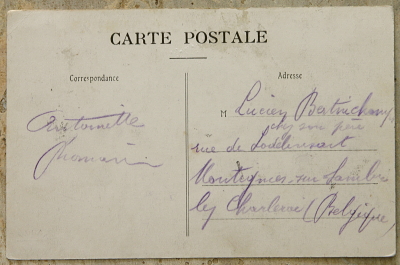 CARTE POSTALE
Correspondance
Adresse
Antoinette
M Lucien
chez son père
rue de Lodelinsart
Montignies-sur-Sambre
lez Charleroi (Belgique)